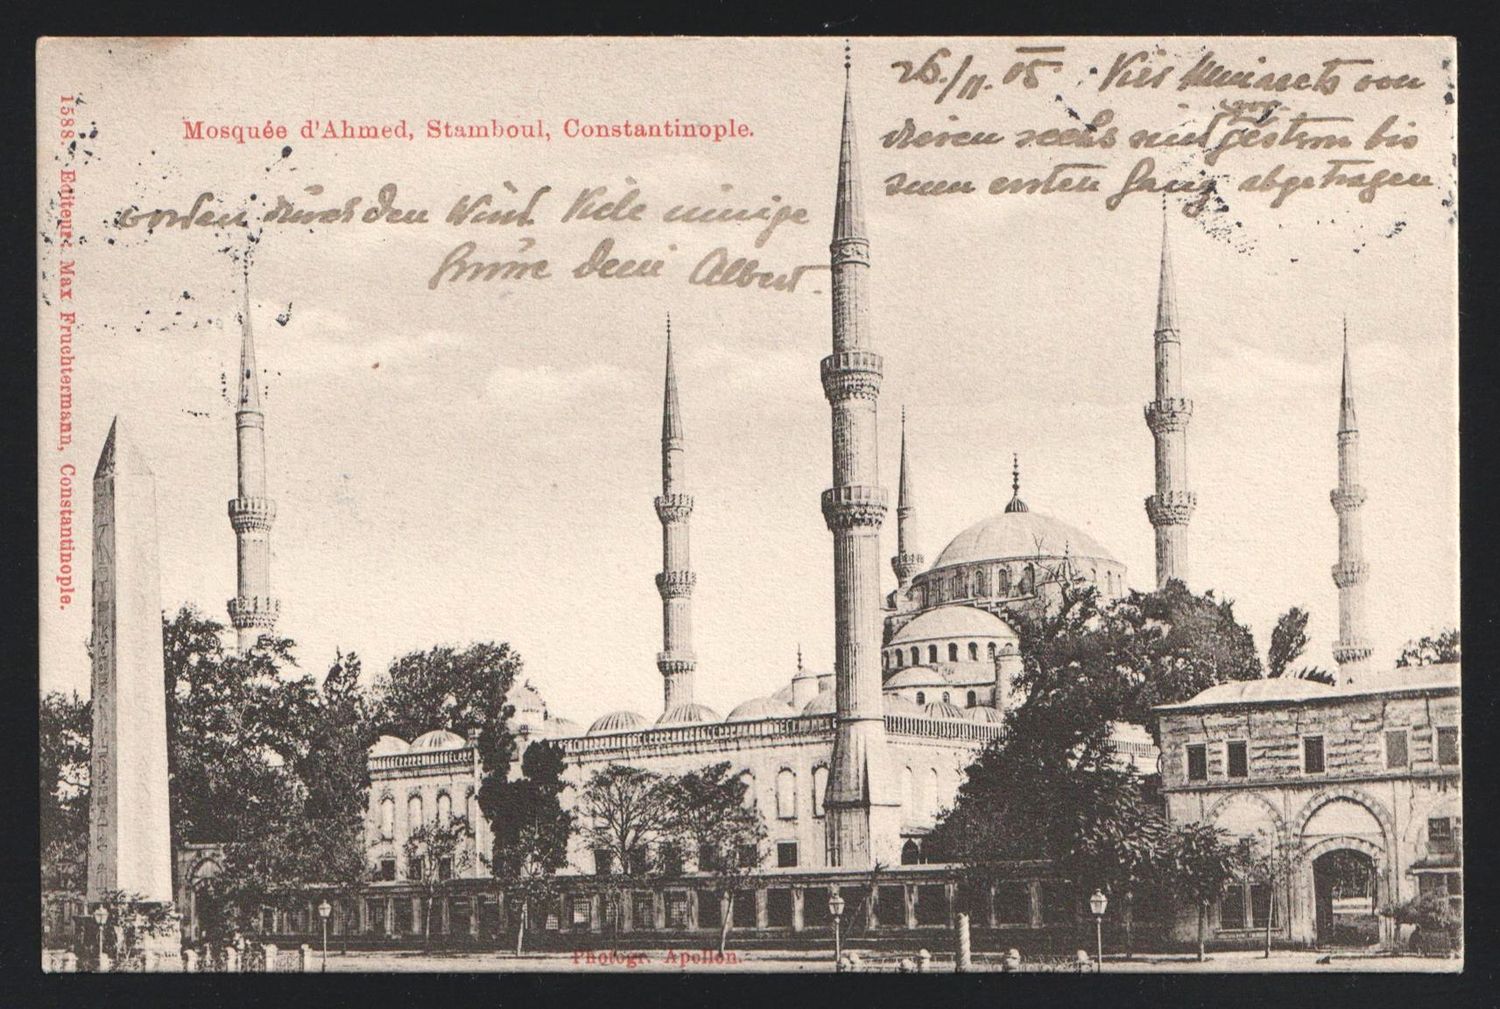 15888. Editeur: Max Fruchtermann, Constantinople.
Mosquée d'Ahmed, Stamboul, Constantinople.
26./11. 05. Vier Minarets von
diesen sechs sind vorgestern bis
zum ersten Gang abgetragen
worden durch den Wind. Viele innige
Grüsse dein Albert.
Photogr. Apollon.